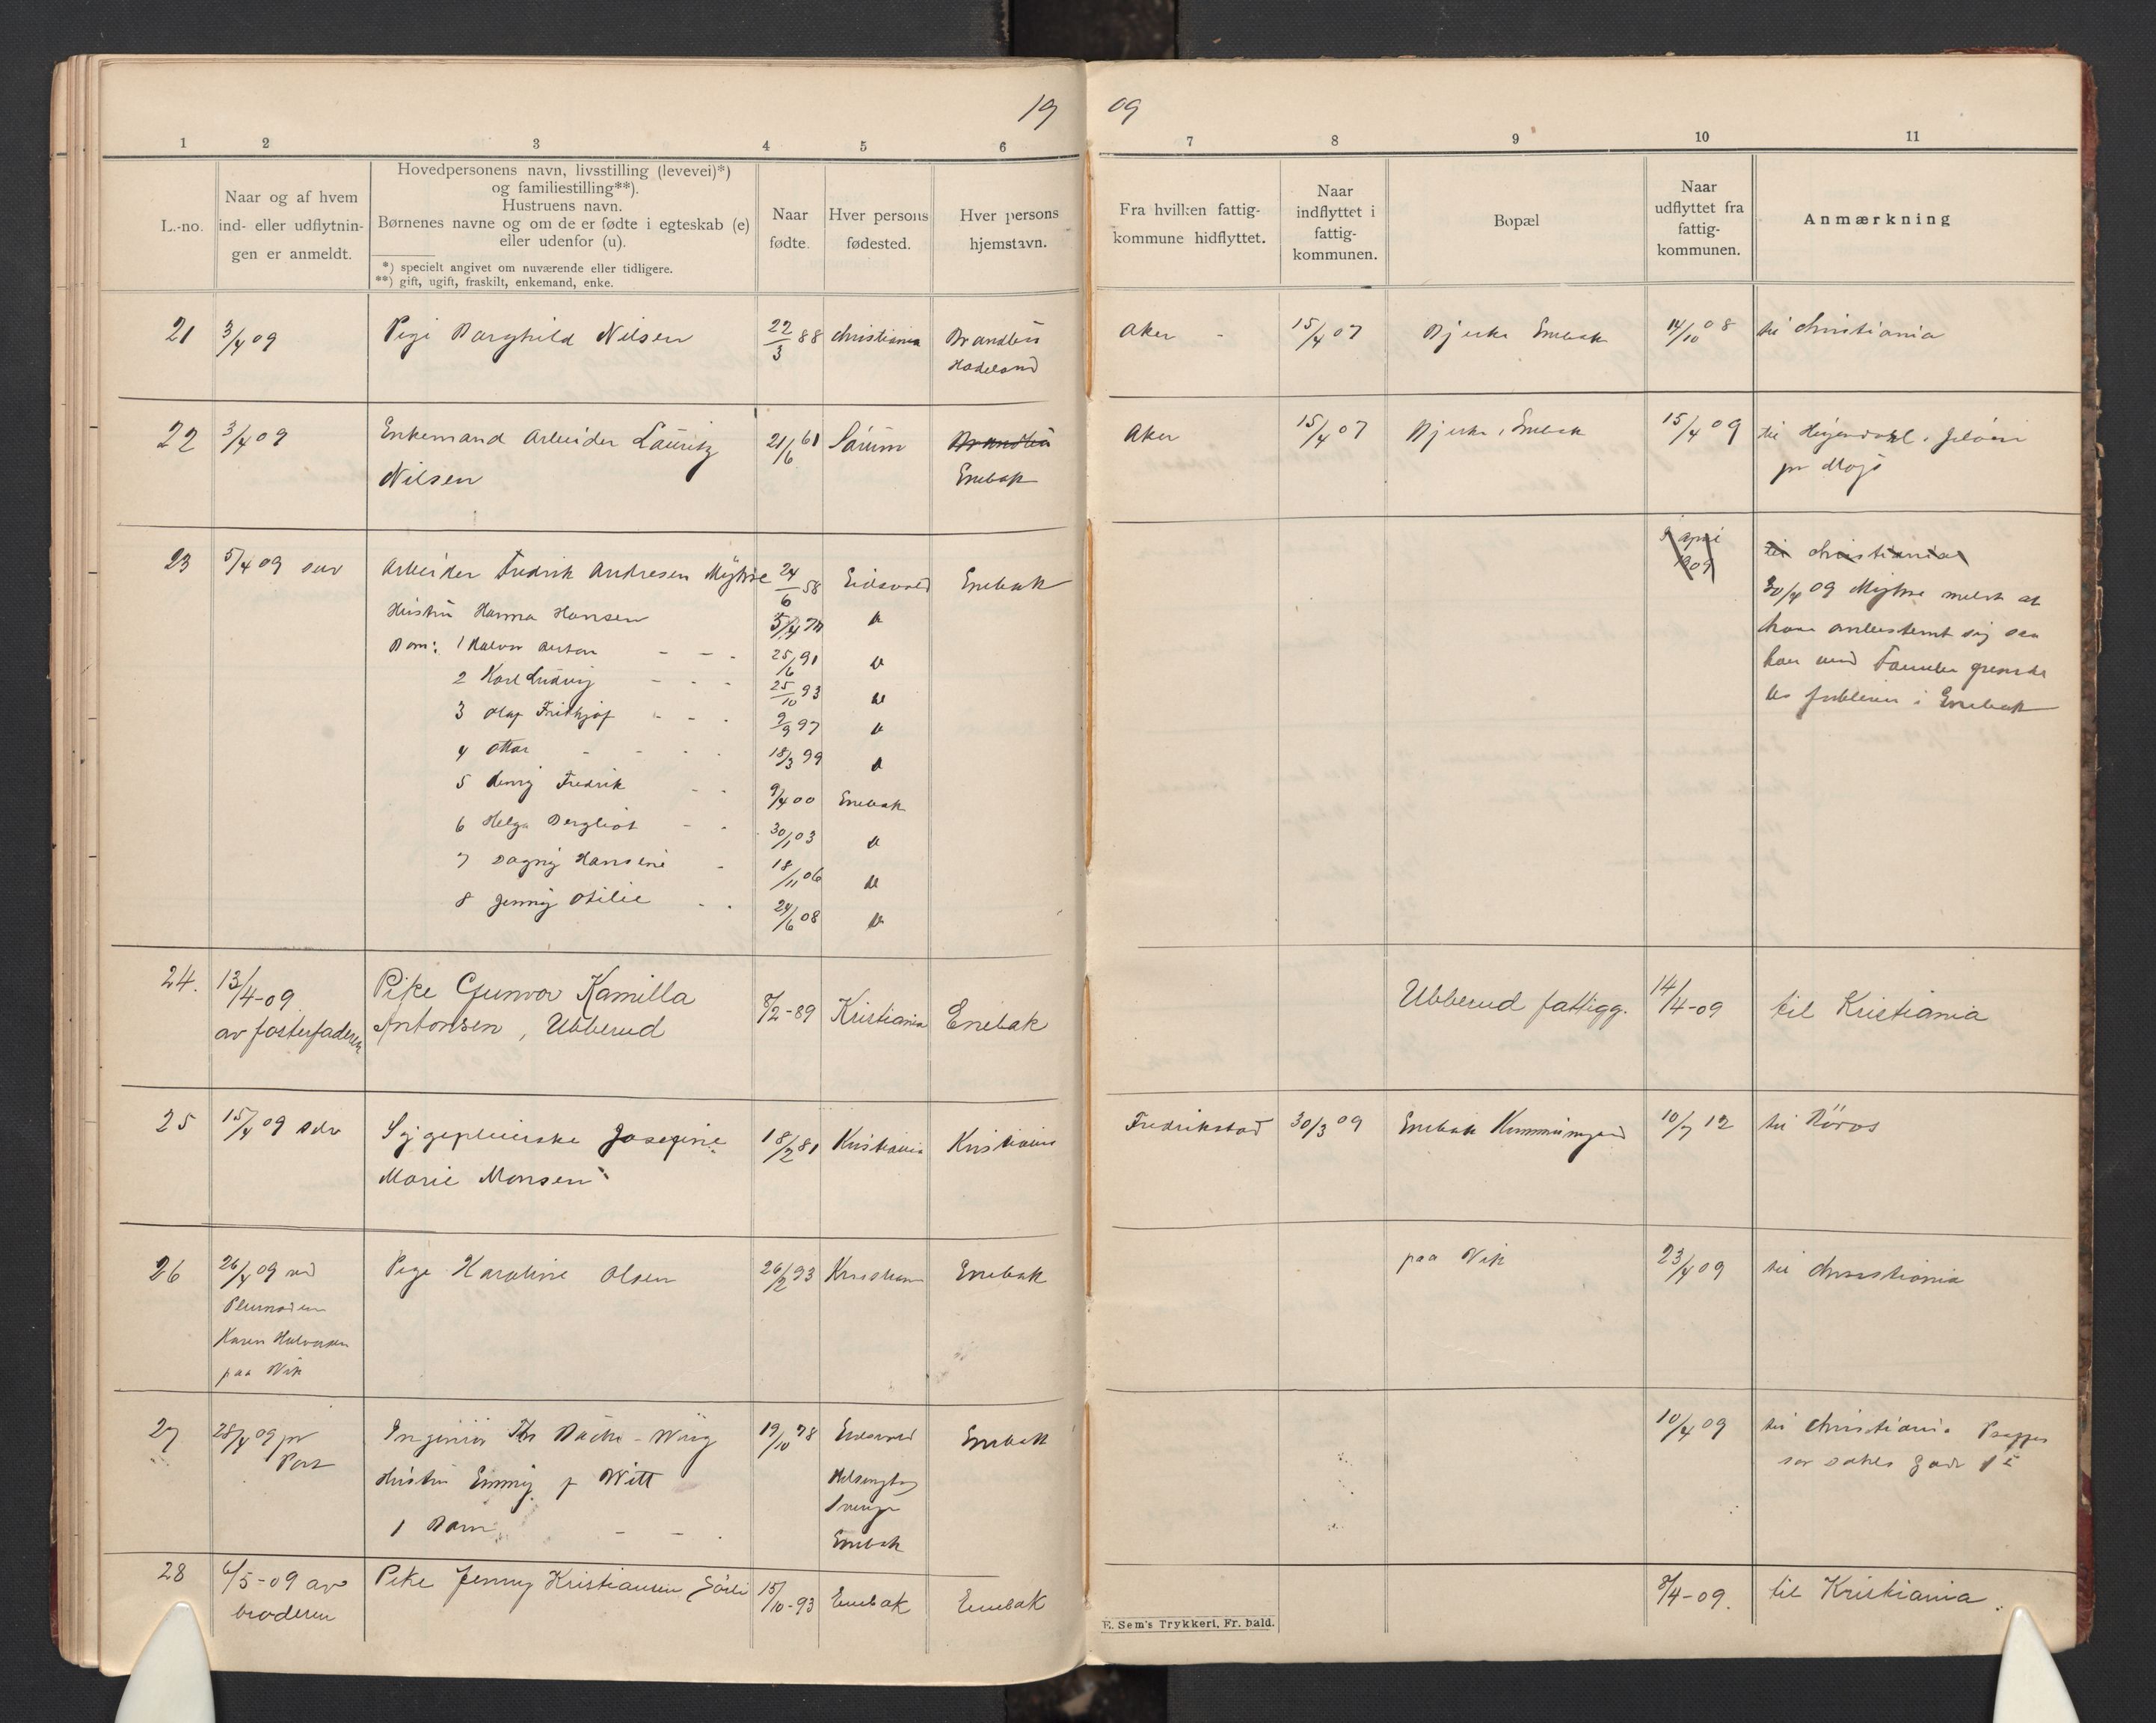 19 09
1 2 3 4 5 6 7 8 9 10 11
L.-no.
Naar og af hvem
ind- eller udflytnin-
gen er anmeldt.
Hovedpersonens navn, livsstilling (levevei)*)
og familiestilling**).
Hustruens navn.
Børnenes navne og om de er fødte i egteskab (e)
eller udenfor (u).
*) specielt angivet om nuværende eller tidligere.
**) gift, ugift, fraskilt, enkemand, enke.
Naar
fødte.
Hver persons
fødested.
Hver persons
hjemstavn.
Fra hvilken fattig-
kommune hidflyttet.
Naar
indflyttet i
fattig-
kommunen.
Bopæl
Naar
udflyttet fra
fattig-
kommunen.
Anmærkning
21 3/4 09 Pige Borghild Nilsen 22/3 88 Christiania Brandbu Aker - 15/4 07 Bjerke Enebak 14/10 08 til Christiania
Hadeland
22 3/4 09 Enkemand Arbeider Lauritz 21/6 61 Sørum Brandbu Aker 15/4 07 Bjerke, Enebak 15/4 09 til
Nilsen Enebak pr Mysen
23 5/4 09 selv Arbeider Fredrik Andresen Myhre 24/6 58 Eidsvold Enebak 9 april 1909 til Christiania
Hustru Hanna Hansen 5/4 70 do 30/4 09 Myhre meldt at
Barn: 1 Halvor Anton - - - 25/6 91 do have ombestemt sig saa
2 Karl Ludvig - - - 25/10 93 do han med Familie
3 Olaf Frithjof - - - 9/9 97 do i Enebak
4 Ottar - - - - 18/3 99 do
5 Henry Fredrik - - 9/4 00 Enebak
6 Helga Bergliot - - 30/1 03 do
7 Dagny Hansine - 18/11 06 do
8 Jenny Otilie - - 24/6 08 do
24. 13/4-09 Pike Gunvor Kamilla 8/2-89 Kristiania Enebak Ubberud fattigg. 14/4-09 til Kristiania
av fosterfaderen Antonsen, Ubberud
25 15/4 09 selv Sygepleierske Josefine 18/2 81 Kristiania Kristiania Fredrikstad 30/3 09 Enebak Kommunegaard 10/7 12 til Röros
Marie Monsen
26 26/4 09 ved Pige Karoline Olsen 26/2 93 Kristiania Enebak paa Vik 23/4 09 til Christiania
Pleiemoderen
Karen Halvorsen
paa Vik
27 28/4 09 pr Ingeniør Ths Bache-Wiig 19/10 78 Eidsvold Enebak 10/4 09 til Christiania
Post Hustru Emmy f Witt Helsingborg
Sverige
1 Barn - - . Enebak
28 6/5-09 av Pike Jenny Kristiansen Sörli 15/10-93 Enebak Enebak 8/4-09. til Kristiania.
broderen
E. Sem's Trykkeri, Fr. hald.